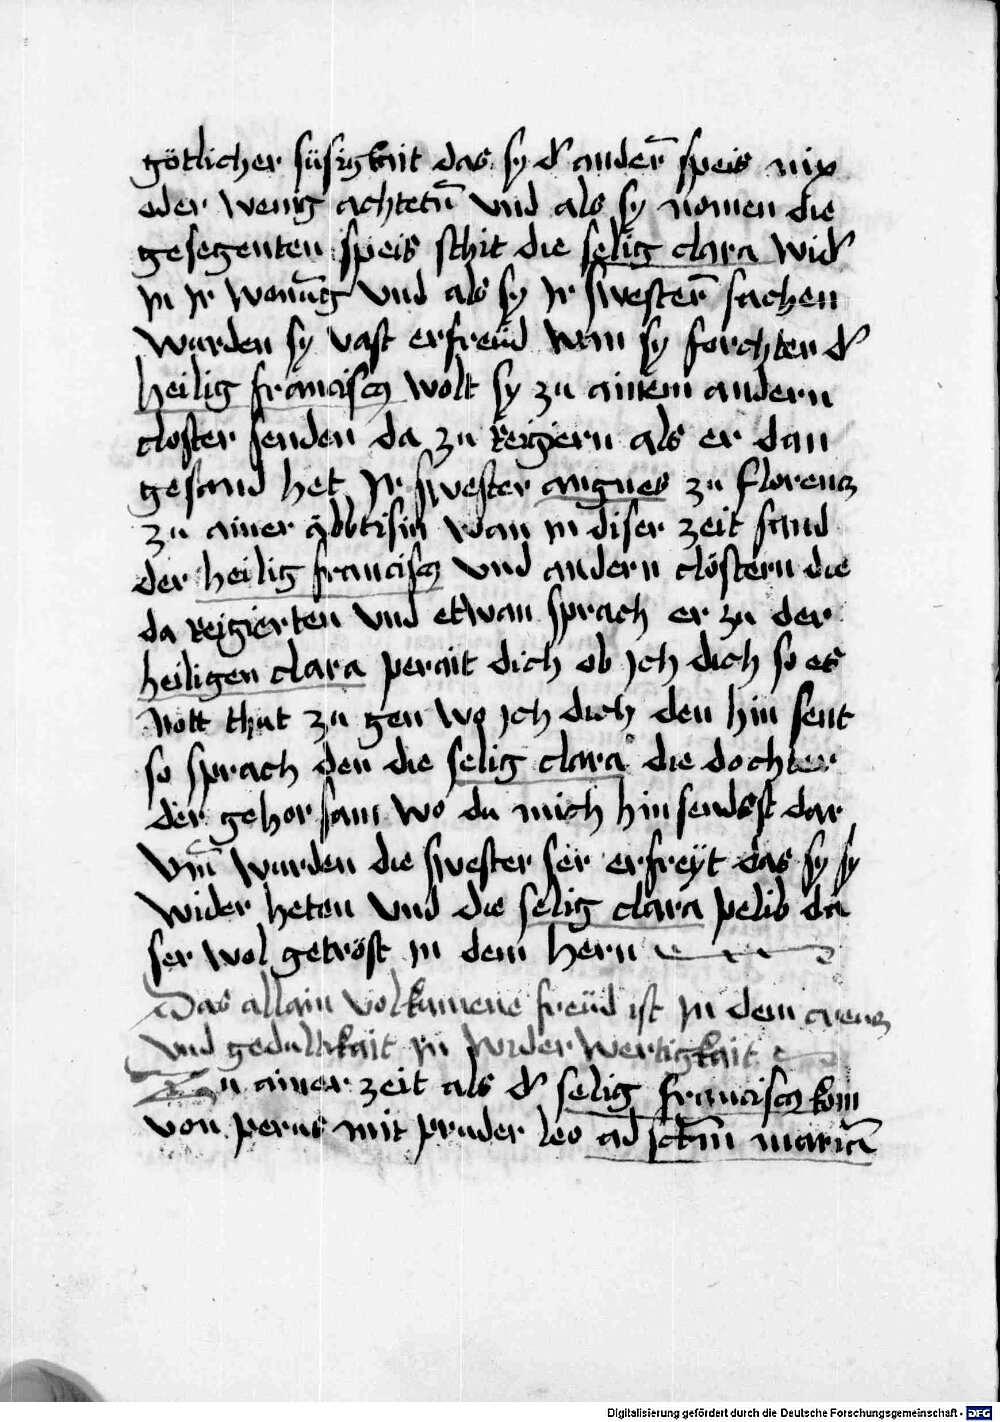 götlicher süsigkait das sy d' ander̄ speis nix
oder wenig achtetn̄ vnd als sy nomen die
gesegenten speis schit die selig clara wid'
in ir wonūg vnd als sy ir swester̄ sachen
wurden sy vast erfreüd wan sy forchten d'
heilig franciscꝫ wolt sy zu ainem andern
closter senden da zu Reigiern als er dan
gesand het ir swester angnes zu florencz
zu ainer äbbtisin wan in diser zeit sand
der heilig franciscꝫ vnd andern clöstern die
da Reigierten vnd etwan sprach er zu der
heiligen clara perait dich ob ich dich so es
nott thut zu gen wo ich dich den hin sent
so sprach den die selig clara die dochter
der gehorsam wo du mich hin sendest dar
vm̄ wurden die swester ser erfreyt das sy sy
wider heten vnd die selig clara pelib da
ser wol getröst in dem hern
Das allain volkamene freüd ist in dem creucz
vnd gedultikait in widerwertigkait
Zu ainer zeit als d' selig franciscꝫ kom
von perus mit pruder leo ad sctm̄ mariā
Digitalisierung gefördert durch die Deutsche Forschungsgemeinschaft - DFG